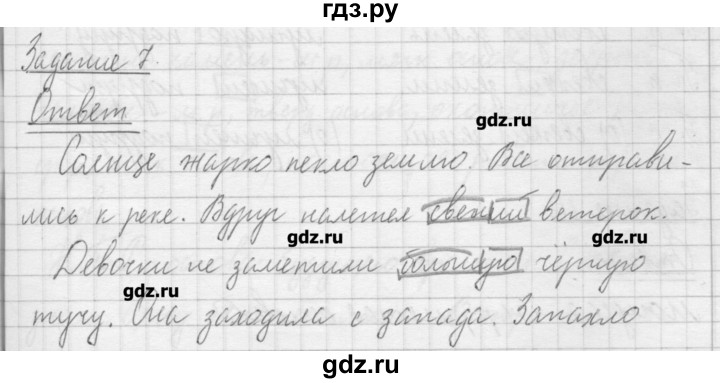 гдз.ру
Задание 7.
Ответ
gdz.ru
Солнце жарко пекло землю. Все отправи-
лись к реке. Вдруг налетел свежий ветерок.
gdz.ru
gdz.ru
Девочки не заметили большую чёрную
gdz.ru
тучу. Она заходила с запада. Запахло
gdz.ru